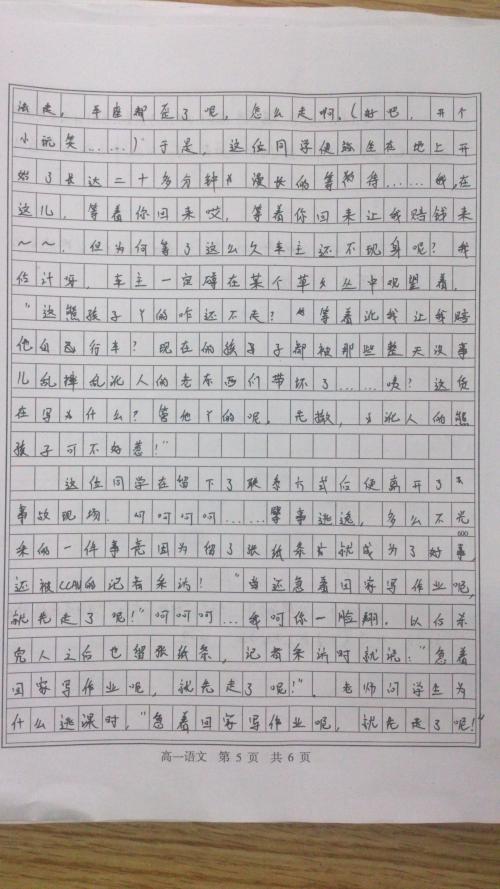 法走，车座都歪了呢，怎么走啊。(好吧，开个
小玩笑……)于是，这位同学便独坐在地上开
始了长达二十多分钟漫长的等待……我，在
这儿，等着你回来哎，等着你回来让我赔钱来
～～，但为何等了这么久车主还不现身呢？我
估计呀，车主一定蹲在某个草丛中观望着，
“这熊孩子丫的咋还不走？等着讹我让我赔
他自行车？现在的孩子都被那些整天没事
儿乱摔乱讹人的老东西们带坏了……咦？这货
在写为什么？管他丫的呢，先撤，讹人的熊
孩子可不好惹！”
这位同学在留下了联系方式后便离开了
事故现场。呵呵呵呵……肇事逃逸，多么不光
600
采的一件事竟因为留了张纸条就成为了好事，
还被CCAV的记者采访！“当还急着回家写作业呢，
就先走了呢！”呵呵呵…我呵你一脸翔。以后杀
完人之后也留张纸条，记者采访时就说：“急着
回家写作业呢，就先走了呢！”。老师问学生为
什么逃课时，“急着回家写作业呢，就先走了呢！”
高一语文 第5页 共6页